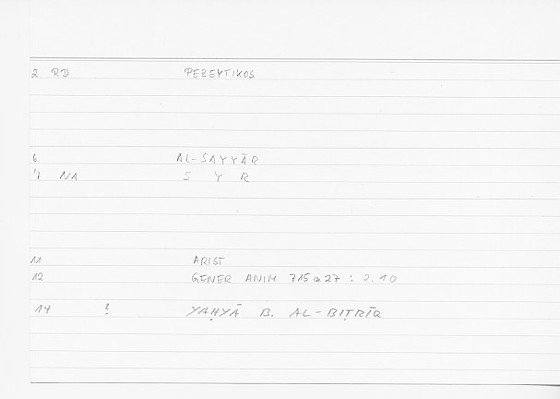 2 RD PEZEYTIKOS
6 AL-SAYYĀR
7 NA S Y R
11 ARIST
12 GENER ANIM 715 a 27 : 2.10
14 ! YAḤYĀ B. AL-BIṬRĪQ